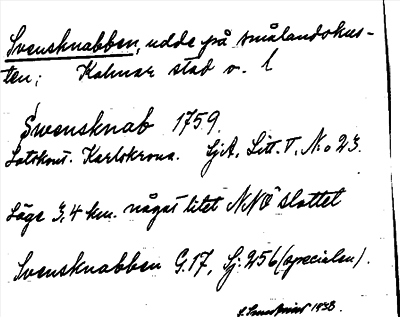 Svensknabben, udde på smålandskus-
ten; Kalmar stad o. l
Swensknab 1759.
Lotskont. Karlskrona. SjA. Litt. V. No 23.
Läge 3,4 km. något litet NNO slottet
Svensknabben G. 17, Sj: 256 (specialen).
1938.